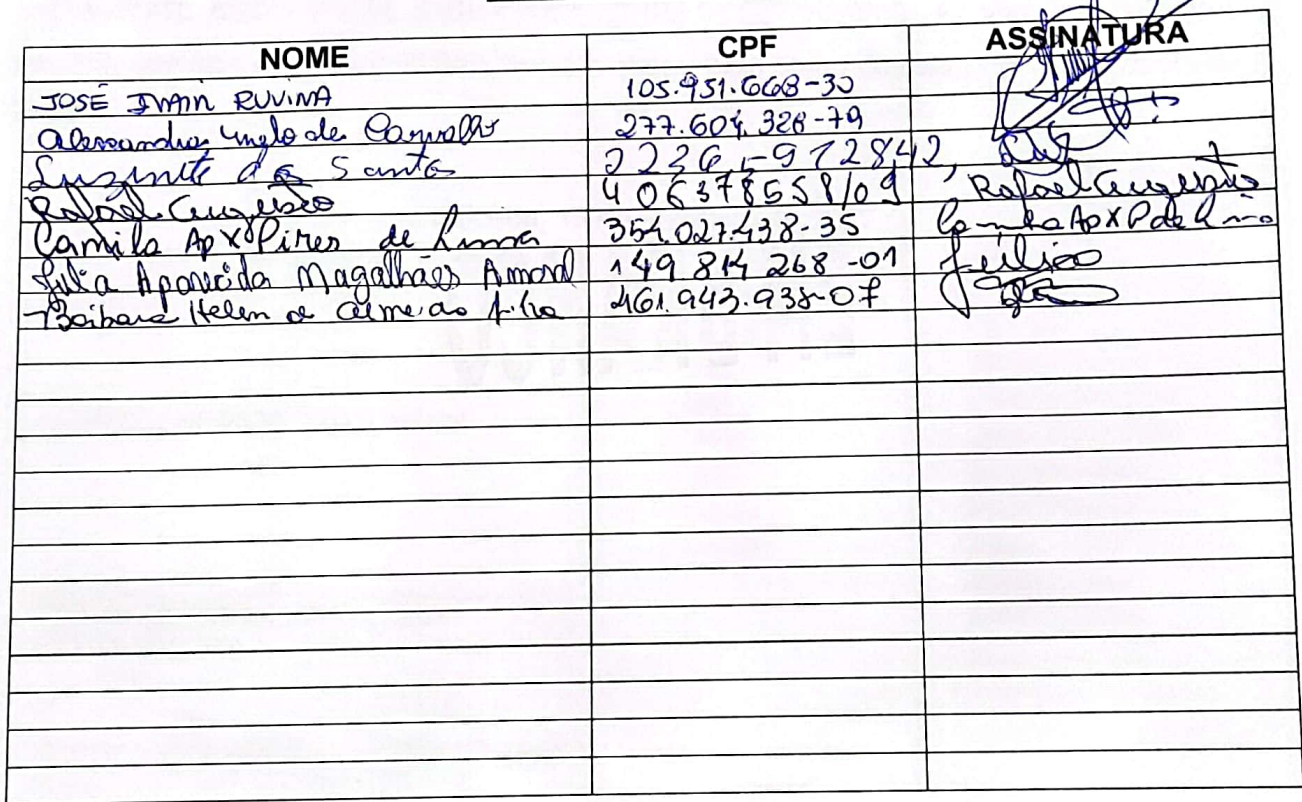 NOME CPF ASSINATURA
JOSÉ IVAIR RUVINA 105.951.668-30
Alessandra Anglo de Carvalho 277.604.328-79
Luzinete dos Santos 2236,-972842, Luz
Rafael Augusto 406378558/09 Rafael Augusto
Camila Ap X Pires de Lima 354.027.438-35 Camila Ap X P de Lima
Julia Aparecida Magalhães Amaral 149 814 268-01 Julia
Helem de Almeida 461.943.938-07